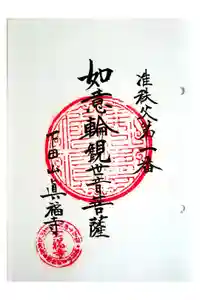 准秩父第一番
如意輪観世音菩薩
下田山真福寺